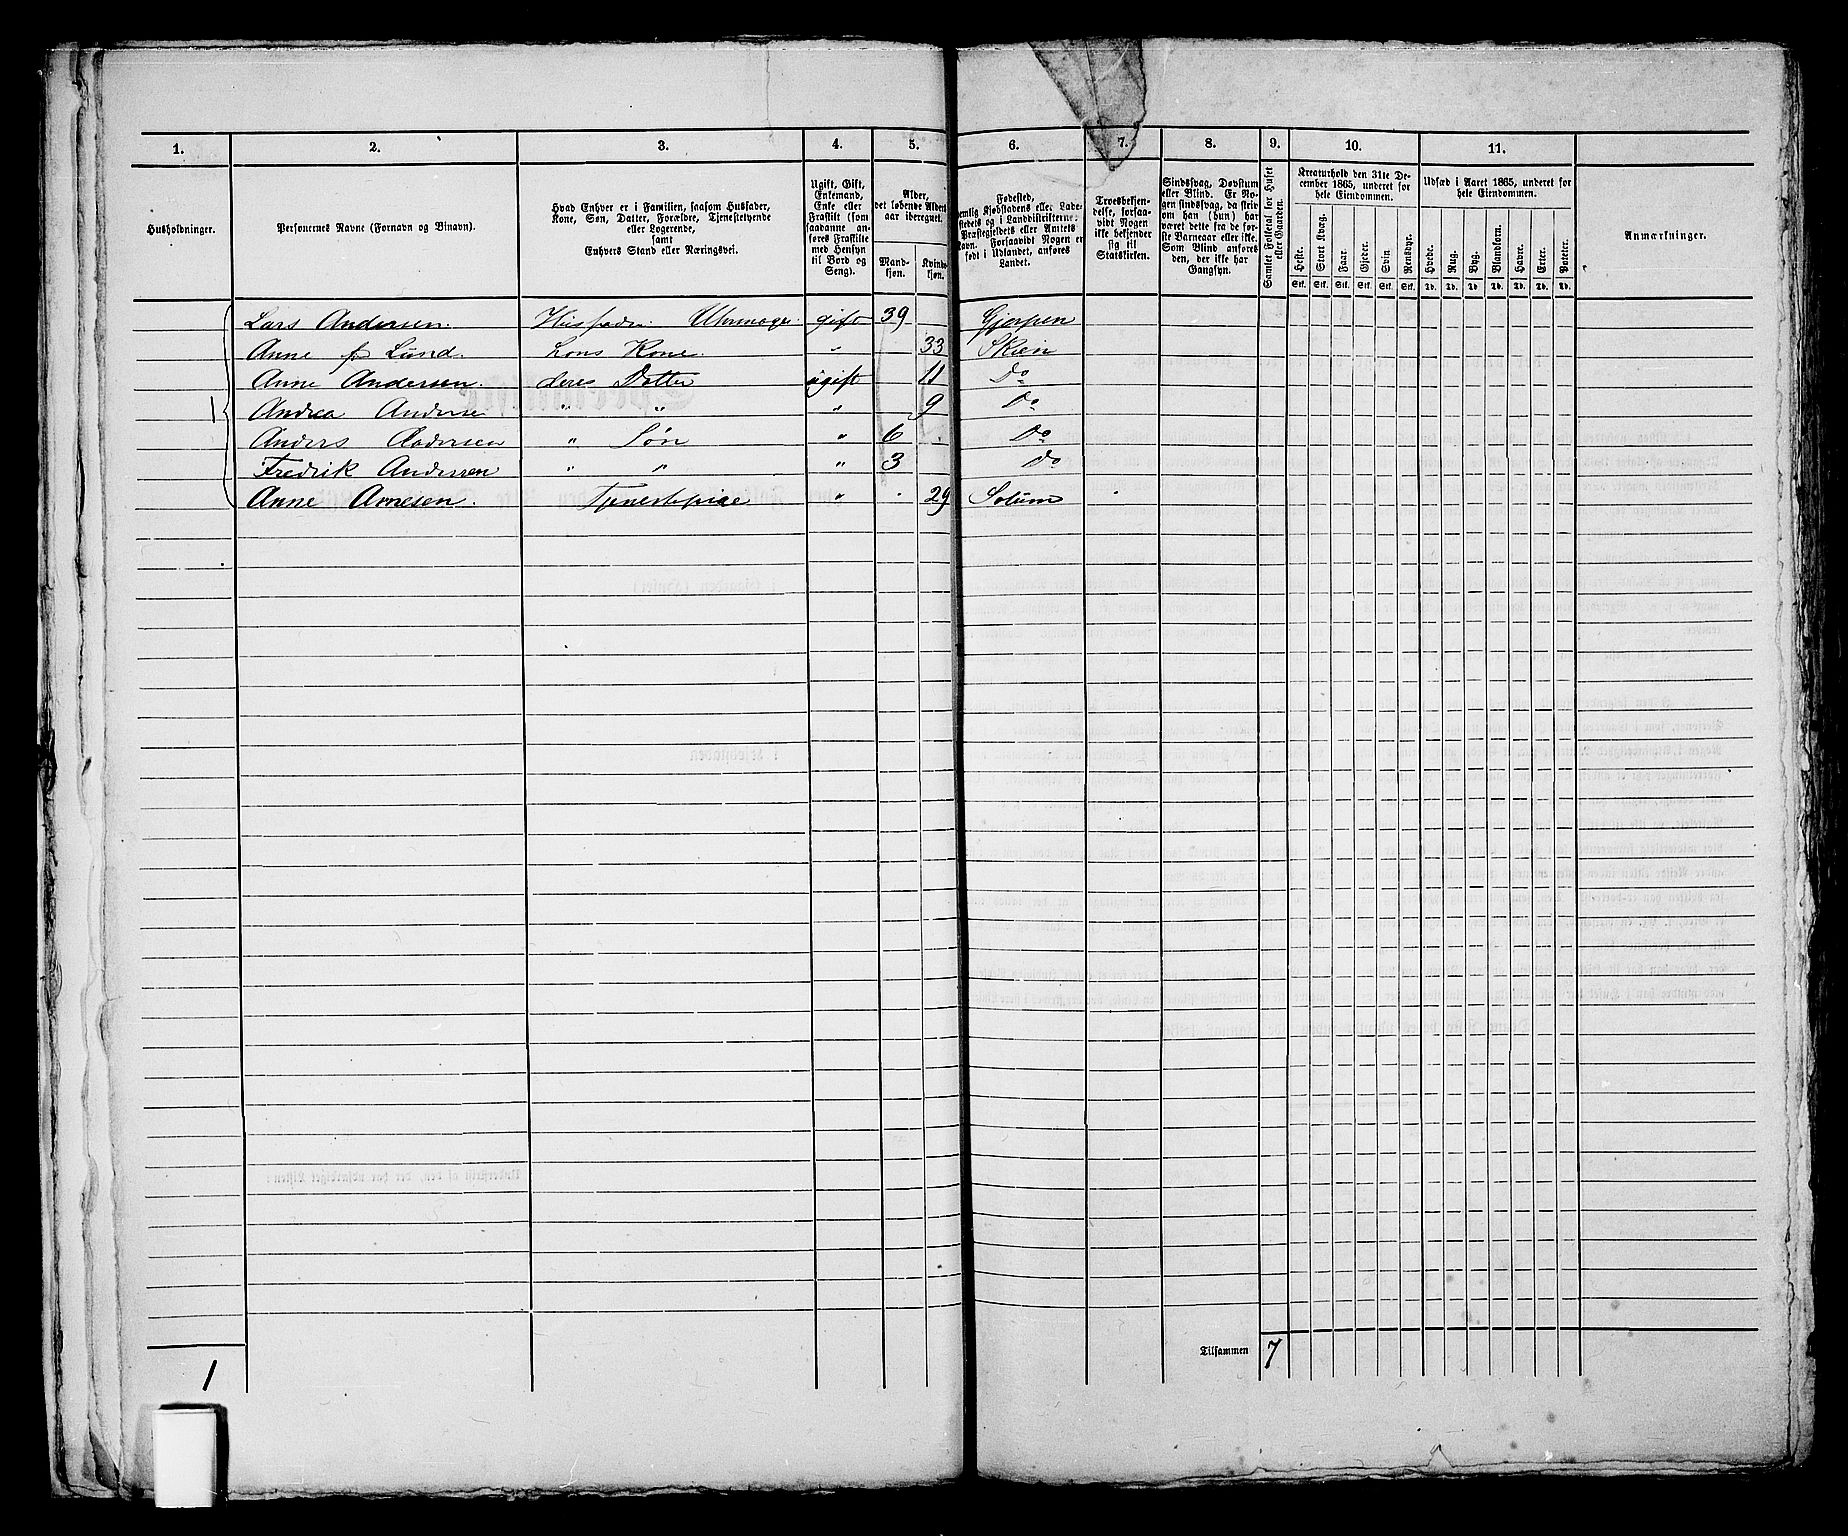 1. 2. 3. 4. 5. 6. 7. 8. 9. 10. 11.
Husholdninger.
Personernes Navne (Fornavn og Binavn).
Hvad Enhver er i Familien, saasom Husfader,
Kone, Søn, Datter, Forældre, Tjenestetyende
eller Logerende,
samt
Enhvers Stand eller Næringsvei.
Ugift, Gift,
Enkemand,
Enke eller
Fraskilt (som
saadanne an-
føres Fraskilte
med Hensyn
til Bord og
Seng).
Alder,
det løbende Alders-
aar iberegnet.
Mand-
kjøn.
Kvinde-
kjøn.
Fødested,
nemlig Kjøbstadens eller Lade-
stedets og i Landdistrikterne:
Præstegjeldets eller Amtets
Navn. Forsaavidt Nogen er
født i Udlandet, anføres
Landet.
Troesbekjen-
delse, forsaa-
vidt Nogen
ikke bekjender
sig til
Statskirken.
Sindssvag, Døvstum
eller Blind. Er No-
gen sindssvag, da skriv
om han (hun) har
været dette fra de før-
ste Barneaar eller ikke.
Som Blind anføres
den, der ikke har
Gangsyn.
Samlet Folketal for Huset
eller Gaarden.
Kreaturhold den 31te De-
cember 1865, underet for
hele Eiendommen.
Heste. Stort Kvæg. Faar. Gjeder. Svin Rensdyr.
Stk. Stk. Stk. Stk. Stk. Stk.
Udsæd i Aaret 1865, underet for
hele Eiendommen.
Hvede. Rug. Byg. Blandkorn. Havre. Erter. Poteter.
Td. Td. Td. Td. Td. Td. Td.
Anmærkninger.
Lars Andersen. Husfader. Uhrmager. gift 39 Gjerpen
Anne f. Lund. hans Kone. " 33 Skien
Anne Andersen. deres Datter ugift 11 Do
1 Andrea Anderse " " " 9 Do
Anders Andersen " Søn " 6 Do
Fredrik Andersen " " " 3 Do
Anne Arnesen. Tjenestepige " 29 Solum
Tilsammen 7
1